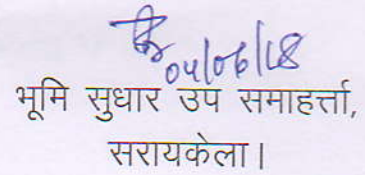 04/06/18
भूमि सुधार उप समाहर्त्ता,
सरायकेला।